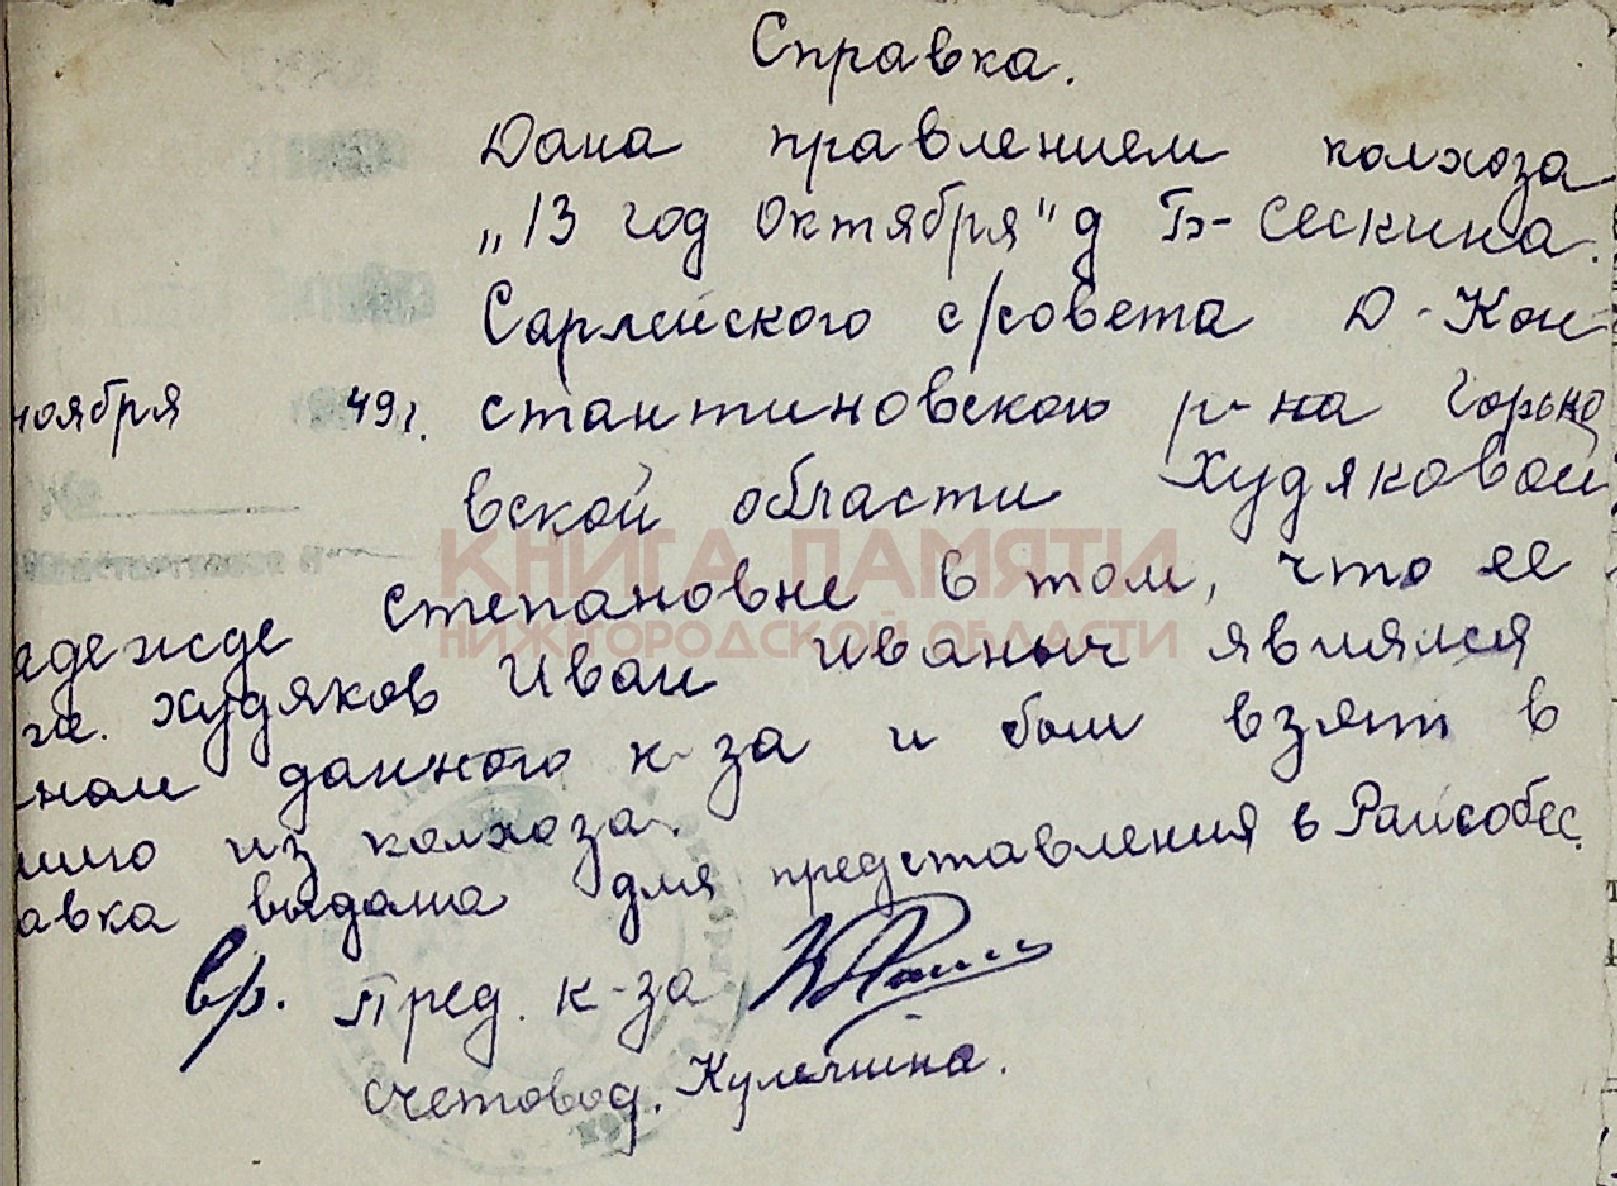 Справка.
Дана правлением колхоза
„13 год Октября" д Б-Сескина.
Сарлейского с/совета Д-Кон
ноября 49г. стантиновского р-на Горько
вской области Худяковой
адежде Степановне в том, что ее
Худяков Иван Иваныч являлся
ном данного к-за и был взят в
из колхоза.
авка выдана для представления в Райсобес.
Вр. Пред. к-за
счетовод. Кулечина.
КНИГА ПАМЯТИ
НИЖЕГОРОДСКОЙ ОБЛАСТИ